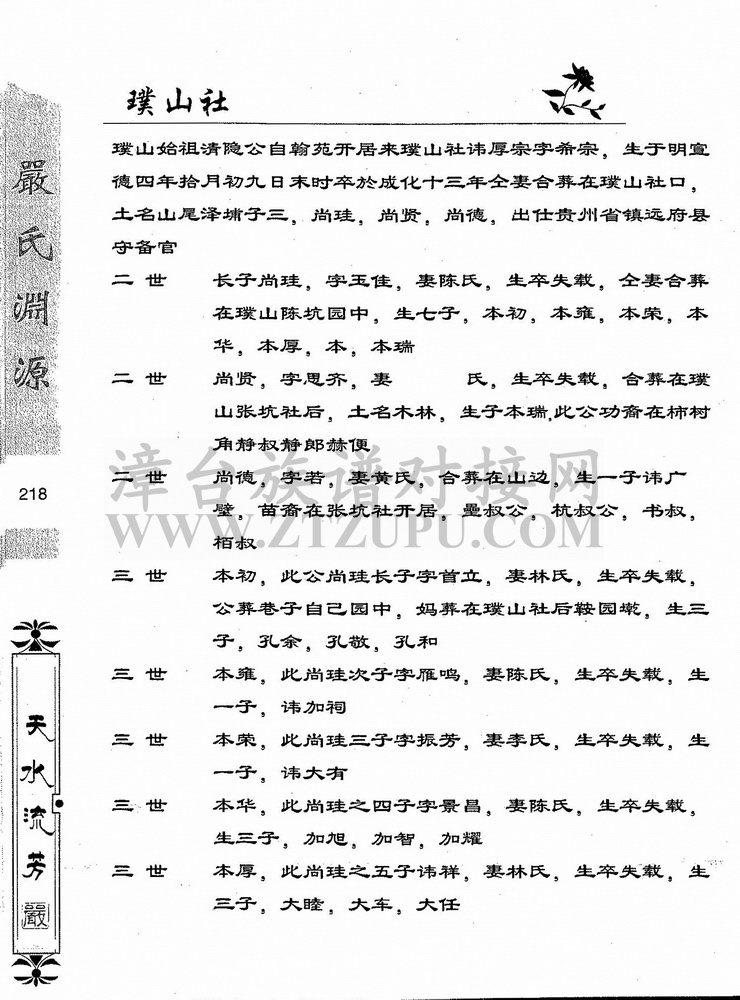 璞山社
璞山始祖清隐公自翰苑开居来璞山社讳厚宗字希宗，生于明宣
德四年拾月初九日末时卒於成化十三年仝妻合葬在璞山社口，
土名山尾泽埔子三，尚珪，尚贤，尚德，出仕贵州省镇远府县
守备官
二世 长子尚珪，字玉佳，妻陈氏，生卒失载，仝妻合葬
在璞山陈坑园中，生七子，本初，本雍，本荣，本
华，本厚，本，本瑞
二世 尚贤，字思齐，妻 氏，生卒失载，合葬在璞
山张坑社后，土名木林，生子本瑞.此公功裔在柿树
角静叔静郎赫便
二世 尚德，字若，妻黄氏，合葬在山边，生一子讳广
壁，苗裔在张坑社开居，曼叔公，杭叔公，书叔，
栢叔
三世 本初，此公尚珪长子字首立，妻林氏，生卒失载，
公葬巷子自己园中，妈葬在璞山社后鞍园墘，生三
子，孔余，孔敬，孔和
三世 本雍，此尚珪次子字雁鸣，妻陈氏，生卒失载，生
一子，讳加祠
三世 本荣，此尚珪三子字振芳，妻李氏，生卒失载，生
一子，讳大有
三世 本华，此尚珪之四子字景昌，妻陈氏，生卒失载，
生三子，加旭，加智，加耀
三世 本厚，此尚珪之五子讳祥，妻林氏，生卒失载，生
三子，大睦，大车，大任
嚴氏淵源
218
天水流芳
嚴
漳台族谱对接网
WWW.ZTZUPU.COM